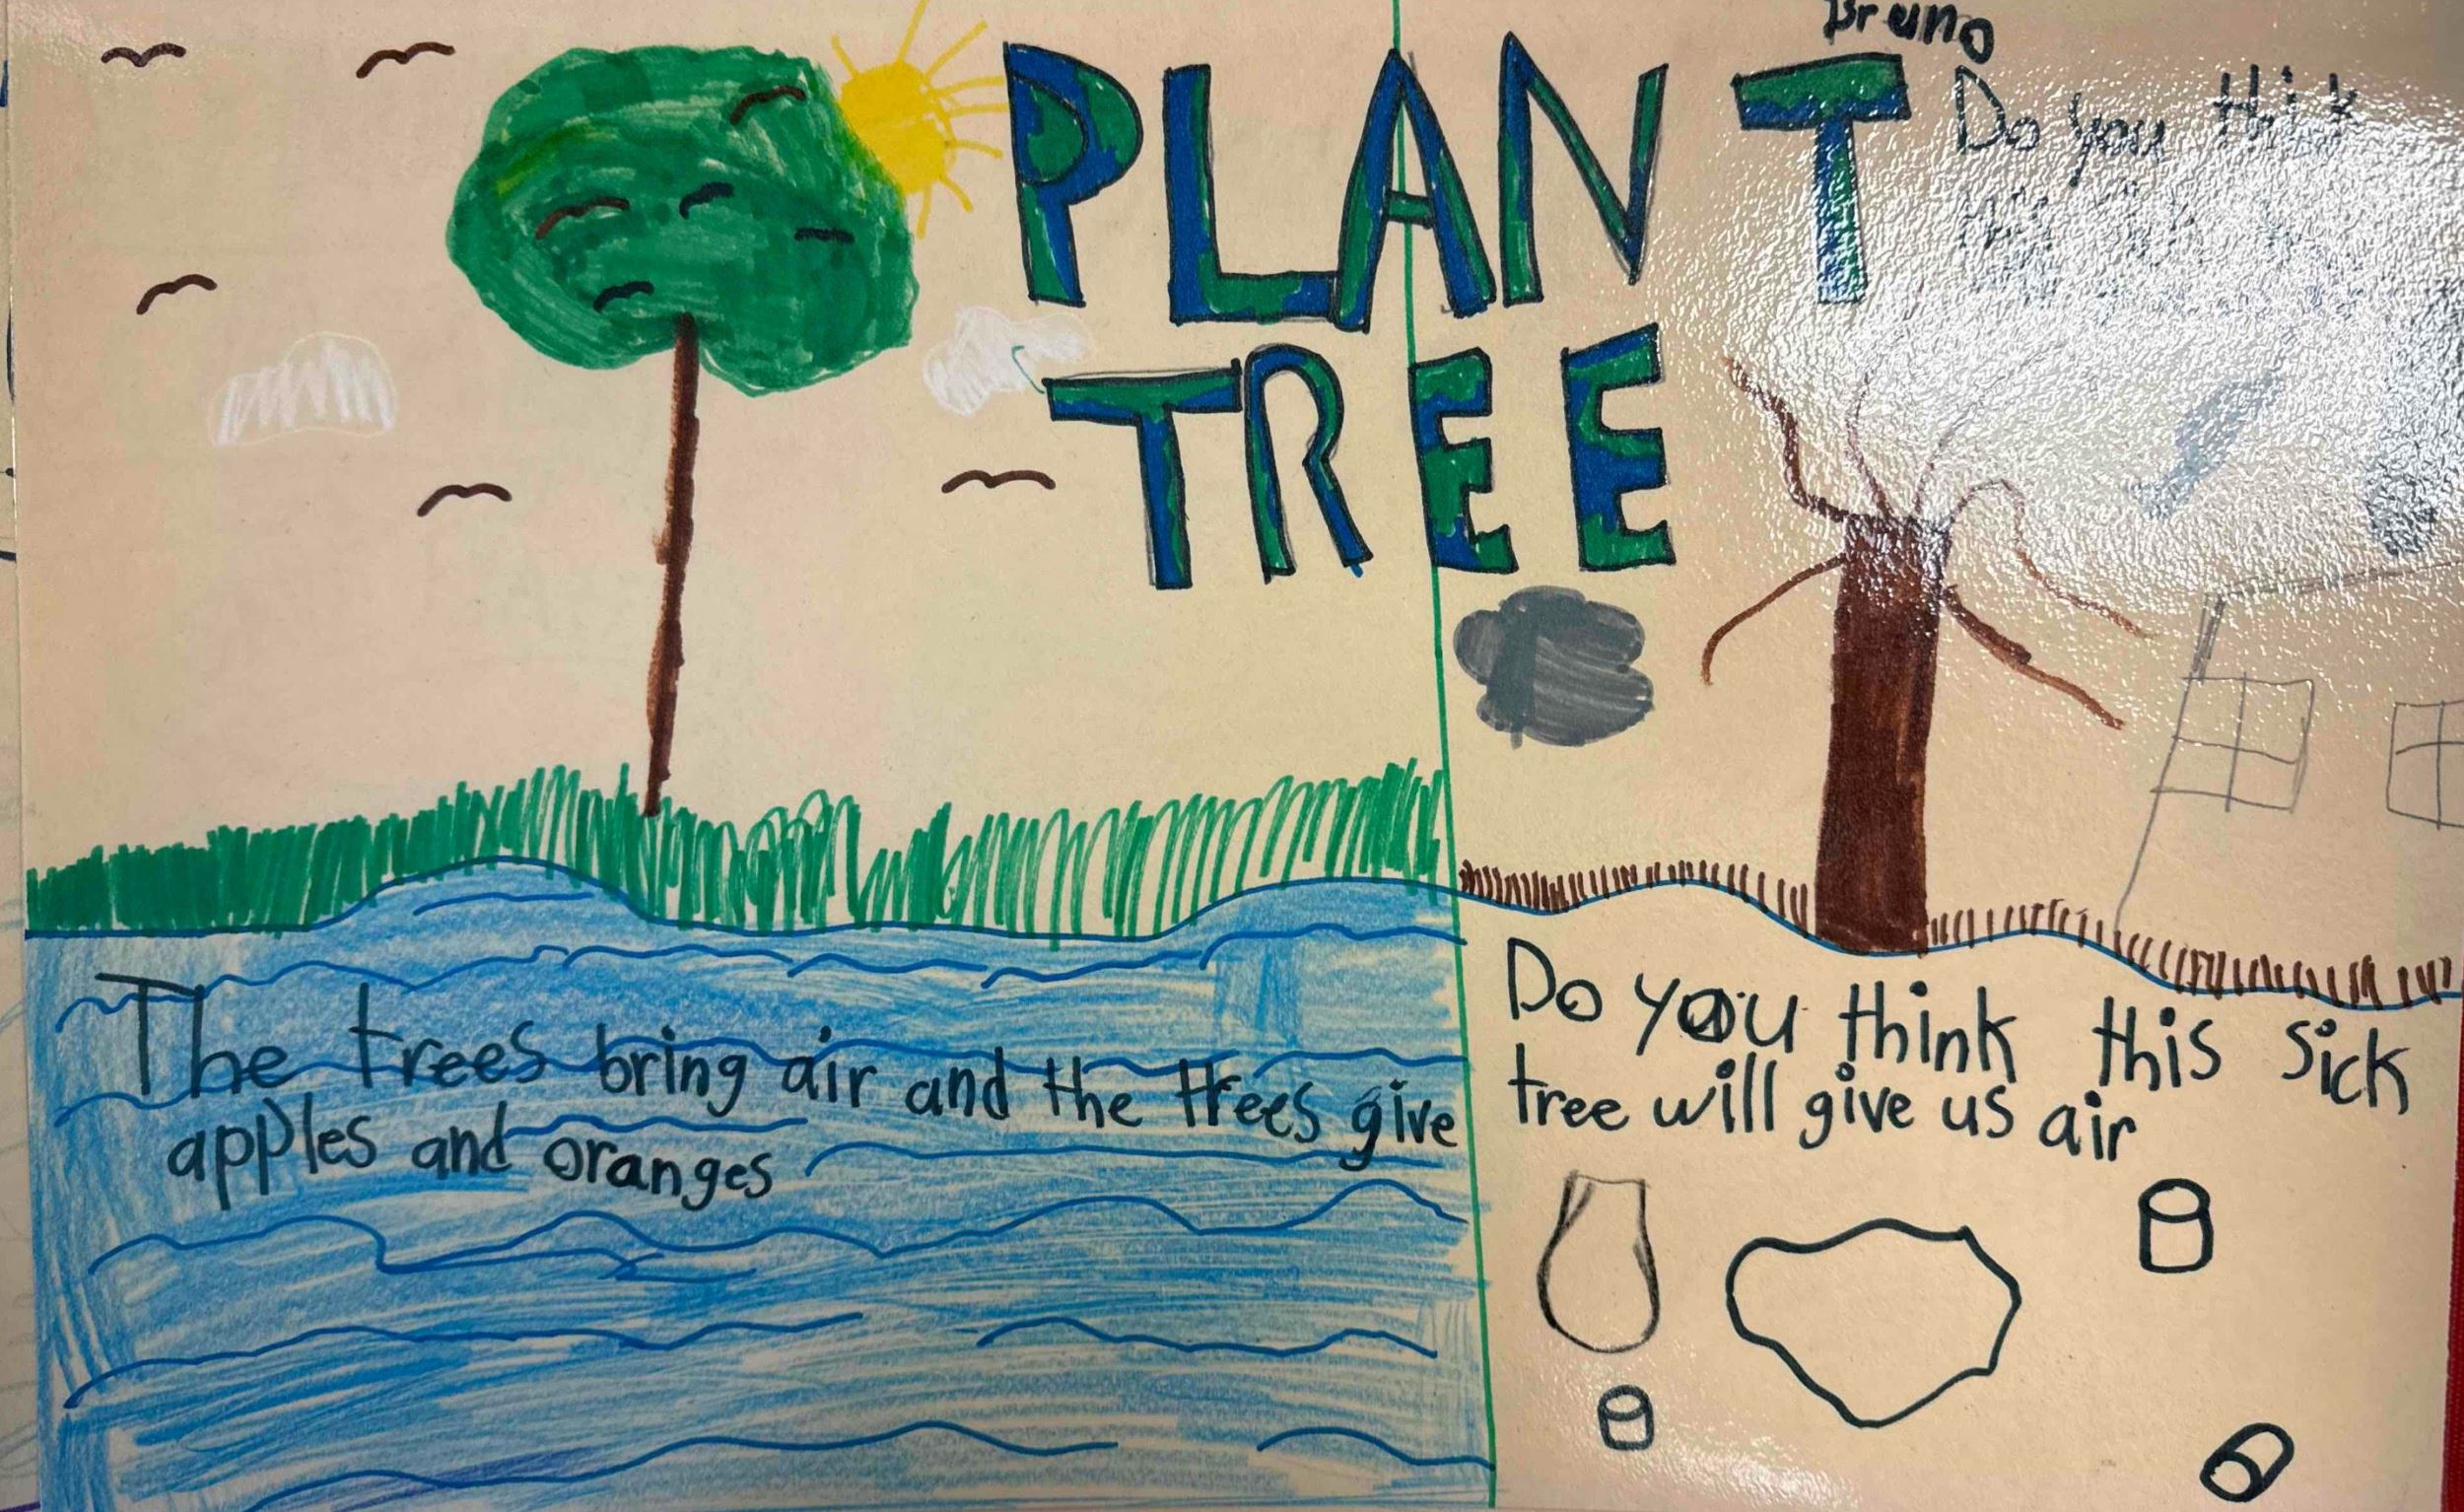 Bruno
PLANT
TREE
Do you thik
The trees bring air and the trees give
apples and oranges
Do you think this sick
tree will give us air